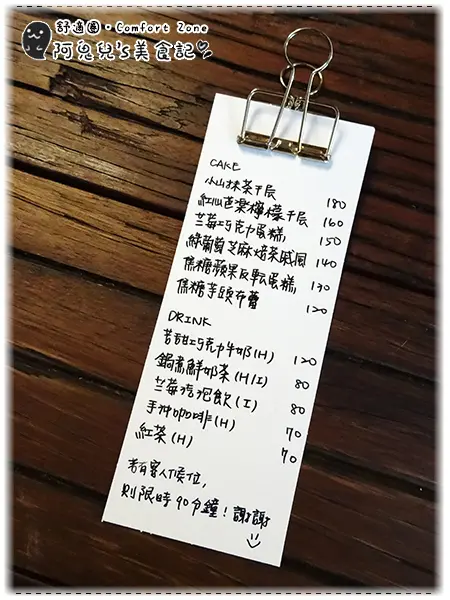 舒適圈・Comfort Zone
阿兔兒's美食記
CAKE
小山抹茶千層 180
紅心芭樂檸檬千層 160
藍莓巧克力蛋糕 150
綠葡萄芝麻焙茶戚風 140
焦糖蘋果反轉蛋糕 130
焦糖芋頭布蕾 120
DRINK
苦甜巧克力牛奶(H) 120
鍋煮鮮奶茶(H/I) 80
藍莓汽泡飲(I) 80
手沖咖啡(H) 70
紅茶(H) 70
若有客人候位,
則限時90分鐘!謝謝